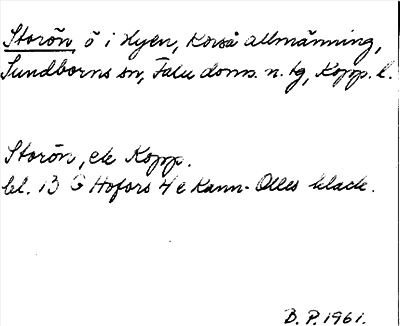 Storön, ö i Hyen, Korså allmänning,
Sundborns sn, Falu doms. n. tg, Kopp. l.
Storön, ek Kopp.
bl. 13 G Hofors 4 e Kann-Olles klack.
B. P. 1961.